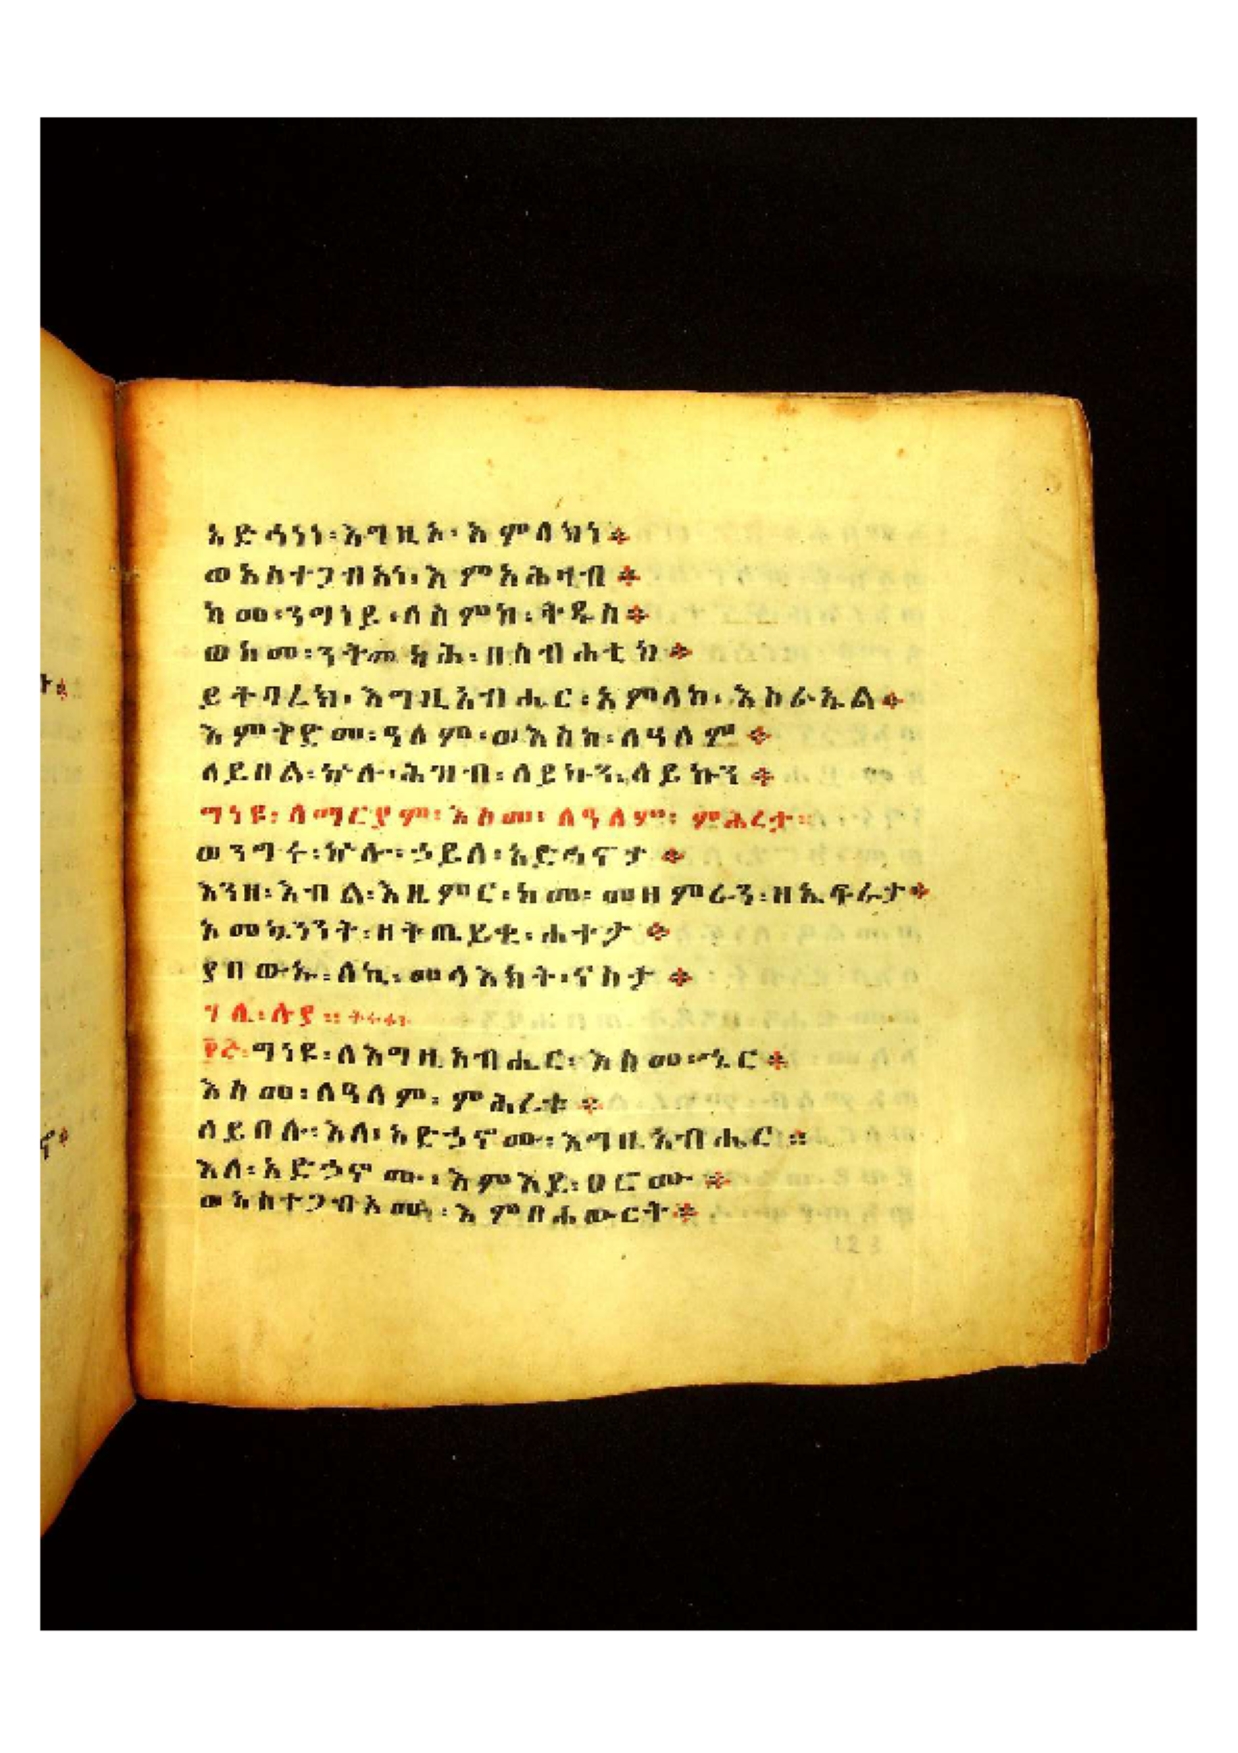 አድኅነነ፡እግዚኦ፡አምላክነ፨
ወአስተጋብአነ፡እምአሕዛብ፨
ከመ፡ንግነይ፡ለስምከ፡ቅዱስ፨
ወከመ፡ንትመካሕ፡በስብሐቲከ፨
ይትባረክ፡እግዚአብሔር፡አምላከ፡እስራኤል፨
እምቅድመ፡ዓለም፡ወእስከ፡ለዓለም፨
ለይበል፡ኵሉ፡ሕዝብ፡ለይኩን፡ለይኩን፨
ግነዩ፡ለማርያም፡እስመ፡ለዓለም፡ምሕረታ።
ወንግሩ፡ኵሎ፡ኃይለ፡አድኅኖታ፨
እንዘ፡እብል፡እዜምር፡ከመ፡መዘምራን፡ዘኤፍራታ፨
አመኳንንት፡ዘትጤይቂ፡ሐተታ፨
ያበውኡ፡ለኪ፡መላእክት፡ናስታ፨
ሃሌ፡ሉያ።
፻፮ግነዩ፡ለእግዚአብሔር፡እስመ፡ኄር፨
እስመ፡ለዓለም፡ምሕረቱ፨
ለይበሉ፡እለ፡አድኃኖሙ፡እግዚአብሔር።
እለ፡አድኃኖሙ፡እምእደ፡ፀሮሙ፨
ወአስተጋብአሙ፡እምበሐውርት፨